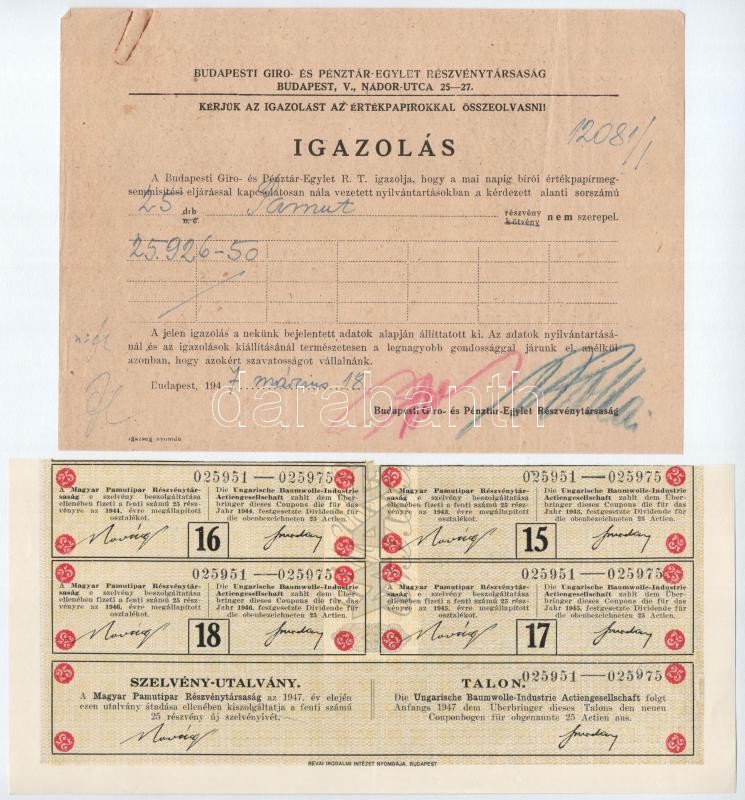 BUDAPESTI GIRO- ÉS PÉNZTÁR-EGYLET RÉSZVÉNYTÁRSASÁG
BUDAPEST, V., NÁDOR-UTCA 25—27.
KÉRJÜK AZ IGAZOLÁST AZ ÉRTÉKPAPIROKKAL ÖSSZEOLVASNI!
12081/1
IGAZOLÁS
A Budapesti Giro- és Pénztár-Egylet R. T. igazolja, hogy a mai napig birói értékpapírmeg-
semmisítési eljárással kapcsolatosan nála vezetett nyilvántartásokban a kérdezett alanti sorszámú
25 drb n. é. Pamut részvény kötvény nem szerepel.
25.926-50
A jelen igazolás a nekünk bejelentett adatok alapján állíttatott ki. Az adatok nyilvántartásá-
nál és az igazolások kiállításánál természetesen a legnagyobb gondossággal járunk el, anélkül
azonban, hogy azokért szavatosságot vállalnánk.
Budapest, 194 7 március 18.
Budapesti Giro- és Pénztár-Egylet Részvénytársaság
igazság nyomda
darabanth
25 025951—025975 25
A Magyar Pamutipar Részvénytár-
saság e szelvény beszolgáltatása
ellenében fizeti a fenti számú 25 rész-
vényre az 1944. évre megállapított
osztalékot.
Die Ungarische Baumwolle-Industrie
Actiengesellschaft zahlt dem Über-
bringer dieses Coupons die für das
Jahr 1944. festgesetzte Dividende für
die obenbezeichneten 25 Actien.
16
25 025951—025975 25
A Magyar Pamutipar Részvénytár-
saság e szelvény beszolgáltatása
ellenében fizeti a fenti számú 25 rész-
vényre az 1943. évre megállapított
osztalékot.
Die Ungarische Baumwolle-Industrie
Actiengesellschaft zahlt dem Über-
bringer dieses Coupons die für das
Jahr 1943. festgesetzte Dividende für
die obenbezeichneten 25 Actien.
15
25 025951—025975 25
A Magyar Pamutipar Részvénytár-
saság e szelvény beszolgáltatása
ellenében fizeti a fenti számú 25 rész-
vényre az 1946. évre megállapított
osztalékot.
Die Ungarische Baumwolle-Industrie
Actiengesellschaft zahlt dem Über-
bringer dieses Coupons die für das
Jahr 1946. festgesetzte Dividende für
die obenbezeichneten 25 Actien.
18
25 025951—025975 25
A Magyar Pamutipar Részvénytár-
saság e szelvény beszolgáltatása
ellenében fizeti a fenti számú 25 rész-
vényre az 1945. évre megállapított
osztalékot.
Die Ungarische Baumwolle-Industrie
Actiengesellschaft zahlt dem Über-
bringer dieses Coupons die für das
Jahr 1945. festgesetzte Dividende für
die obenbezeichneten 25 Actien.
17
SZELVÉNY-UTALVÁNY.
A Magyar Pamutipar Részvénytársaság az 1947. év elején
ezen utalvány átadása ellenében kiszolgáltatja a fenti számú
25 részvény új szelvényívét.
TALON. 025951—025975
Die Ungarische Baumwolle-Industrie Actiengesellschaft folgt
Anfangs 1947 dem Überbringer dieses Talons den neuen
Couponbogen für obgenannte 25 Actien aus.
REVAI IRODALMI INTÉZET NYOMDÁJA, BUDAPEST